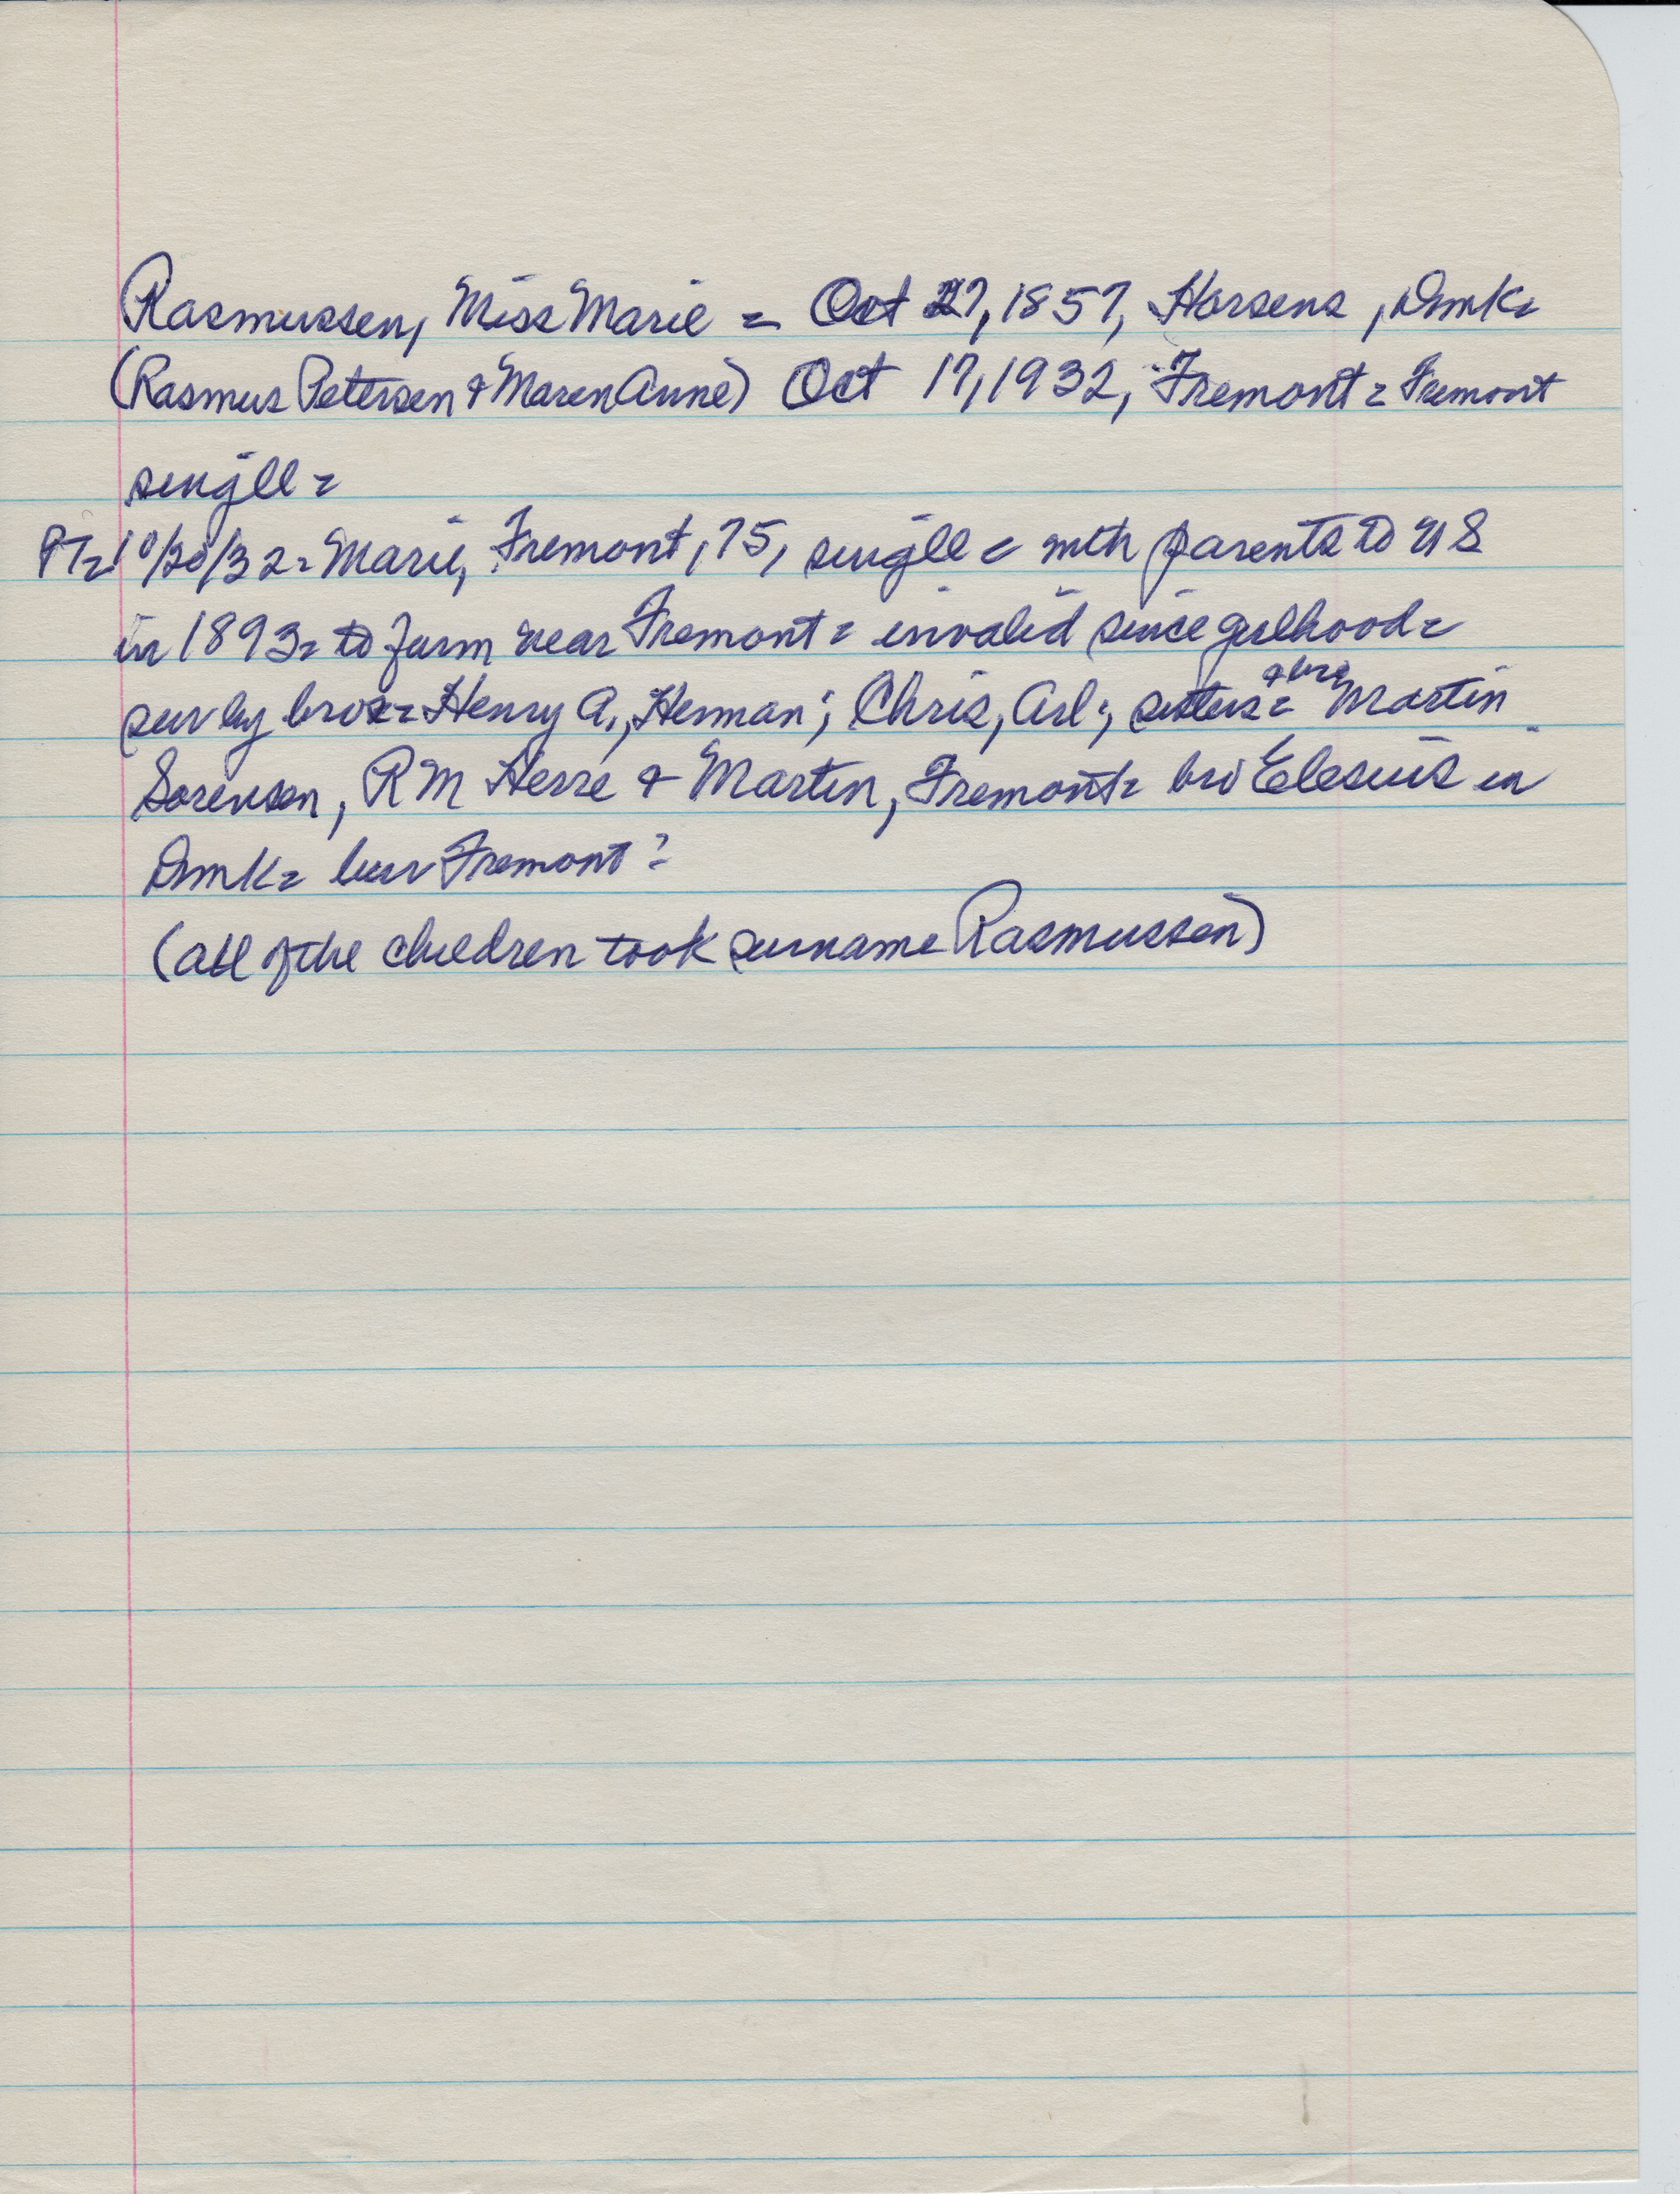 Rasmussen, Miss Marie = Oct 27, 1857, Horsens, Dmk=
(Rasmus Petersen & Maren Anne) Oct 17, 1932, Fremont = Fremont
single =
PT= 10/20/32 = Marie, Fremont, 75, single = with parents to US
in 1893 = to farm near Fremont = invalid since girlhood =
surv by bros = Henry A., Herman; Chris, Arl; sisters & bro = Martin
Sorensen, R M Herre & Martin, Fremont = bro Elesius in
Dmk = bur Fremont?
(all of the children took surname Rasmussen)